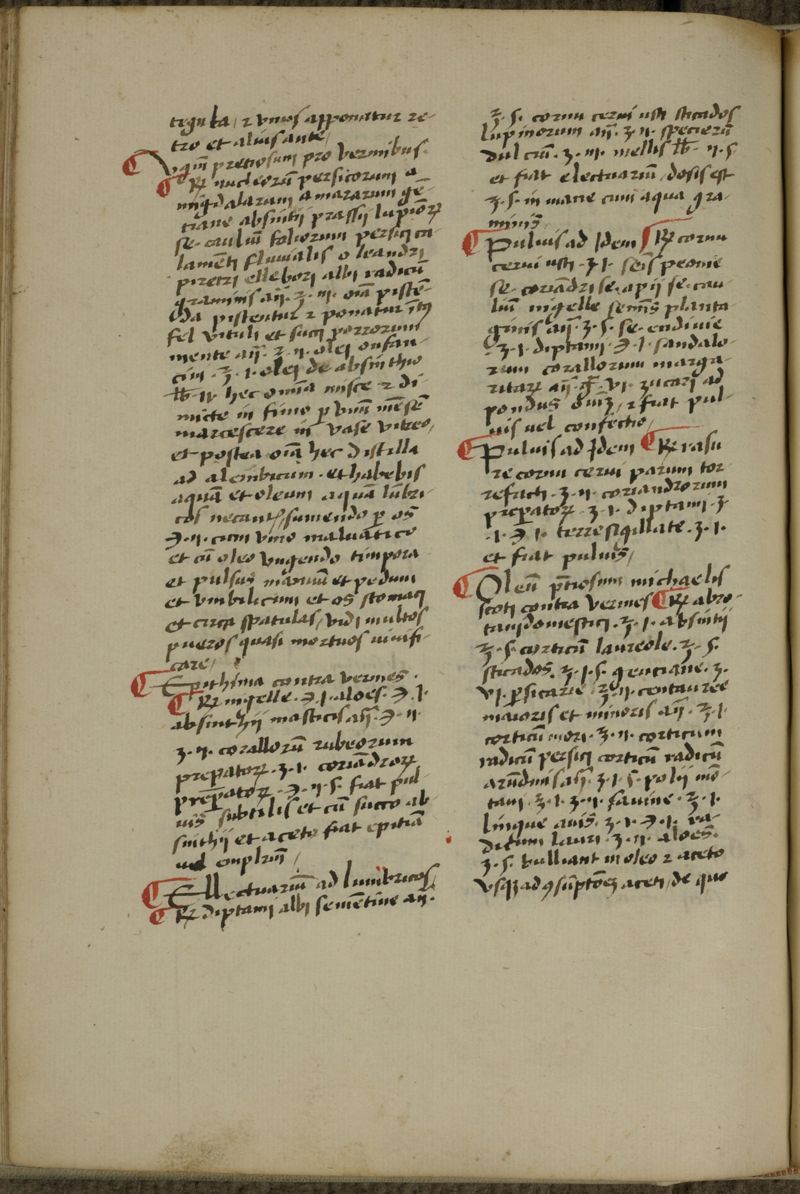 tigula / ⁊ vnus apponatur re-
tro et alius ante /
Vng̅m pretiosum pro vermibus.
℞ nucleoru̅ persicorum a-
migdalarum amararum ge̅-
tiane absintij prassij lupi̅oꝝ
se. cauliu̅ foliorum persici ca-
lame̅ti fluuialis oleandri
piretri ellebori albi radicu̅
graminis an̅. ʒ. ij. o̅ia piste̅-
da pistentur ⁊ ponatur
fel vituli et succi porrorum
mente an̅. ʒ. ij. olei onfan-
cini. ʒ. j. olei de absinthio
℔. ij. hec omnia misce ⁊ di-
micte in fimo p vnu̅ me̅se̅
marcescere in vase vitreo,
et postea o̅ia hec distilla
ad alembicum. et habebis
aqua̅ et oleum aqua lu̅bri-
cos necant / sumendo p os
℈. ij. cum vino maluatico
et cu̅ oleo vngendo timpora
et pulsus manuu̅ et pedum
et vmbilicum et os stomaci
et circa spatulas / vidi multos
pueros quasi mortuos uiuifi-
care /
Epithima contra vermes.
℞ nigelle. ℈. j. aloes. ℈. j.
absinthij masticis an̅. ℈. ij
ʒ. ij. coralloru̅ rubeorum
preparatoꝝ. ʒ. j. coria̅droꝝ
prep̅aratoꝝ. ℈. ij. s. fiat pul-
uis subtilis et cu̅ succo ab-
sinthij et aceto fiat epitia̅
uel emplr̅u̅ /
Ellectuariu̅ ad lumbricos /
℞ diptami albi seme̅tine an̅.
ʒ. s. cornu cerui usti sticados
lupinorum an̅. ʒ. ij. specieru̅
dulciu̅. ʒ. iij. mellis ℔. ij. s.
et fiat electuariu̅ / dosis est
ʒ. s. in mane cum aqua gra-
minis
Puluis ad Idem ℞ cornu
cerui usti. ʒ. j. se̅is peonie
se. coria̅dri se. apij se. cau-
liu̅ nigelle semi̅s planta-
ginis an̅. ʒ. s. se. endiuie
ʒ. j. diptami. ℈. j. sandalo-
rum corallorum marga-
ritaꝝ an̅. vj. zucari ad
pondus o̅iu̅ / ⁊ fiat pul-
uis uel confectio /
Puluis ad Idem ℞ rasu-
re cornu cerui parum tor-
refacti. ʒ. ij. coriandrorum
preparatoꝝ. ʒ. j. diptami. ʒ
.j. ℈. j. terre sigillate. ʒ. j.
et fiat puluis /
Oleu̅ p̅tiosum michaelis
scoti contra vermes ℞ abro-
tani domestici. ʒ. j. absintij
ʒ. s. corticu̅ laureole. ʒ. s.
sticados. ʒ. j. s. genciane. ʒ.
vj. p̅sicarie ʒ. ij. centauree
maioris et minoris an̅. ʒ. j
corticu̅ mori. ʒ. ij. corticum
radicu̅ persici corticu̅ radicu̅
aru̅dinis an̅. ʒ. j. s. polij mo̅-
tani. ʒ. j. ʒ. ij. sauine. ʒ. j.
lingue auis. ʒ. j. ℈. j. ra-
dicum lauri. ʒ. ij. aloes.
ʒ. s. bulliant in oleo ⁊ aceto
vsqꝫ ad ꝯsu̅pto̅eꝫ aceti / de quo